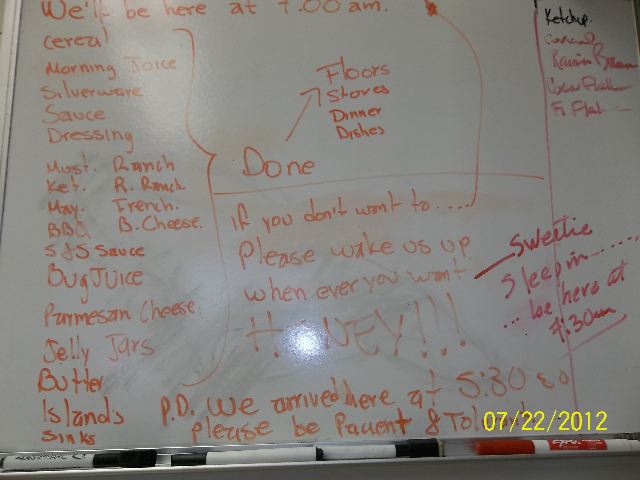 We'll be here at 7:00 am.
cereal
Morning Joice
Silverware
Sauce
Dressing
Must. Ranch
Ket. R. Ranch.
May. French.
BBQ B. Cheese.
S&S Sauce
Bug Juice
Parmesan Cheese.
Jelly Jars
Butter
Islands
Sinks
Floors
Stoves
Dinner
Dishes
Done
if you don't want to.....
Please wake us up
when ever you want
HONEY!!!
P.D. We arrived here at 5:30 so
please be Pacient &
Ketchup.
Raisin Bran
Sweetie
Sleep in......
... be here at
4:30am
07/22/2012
EXPO